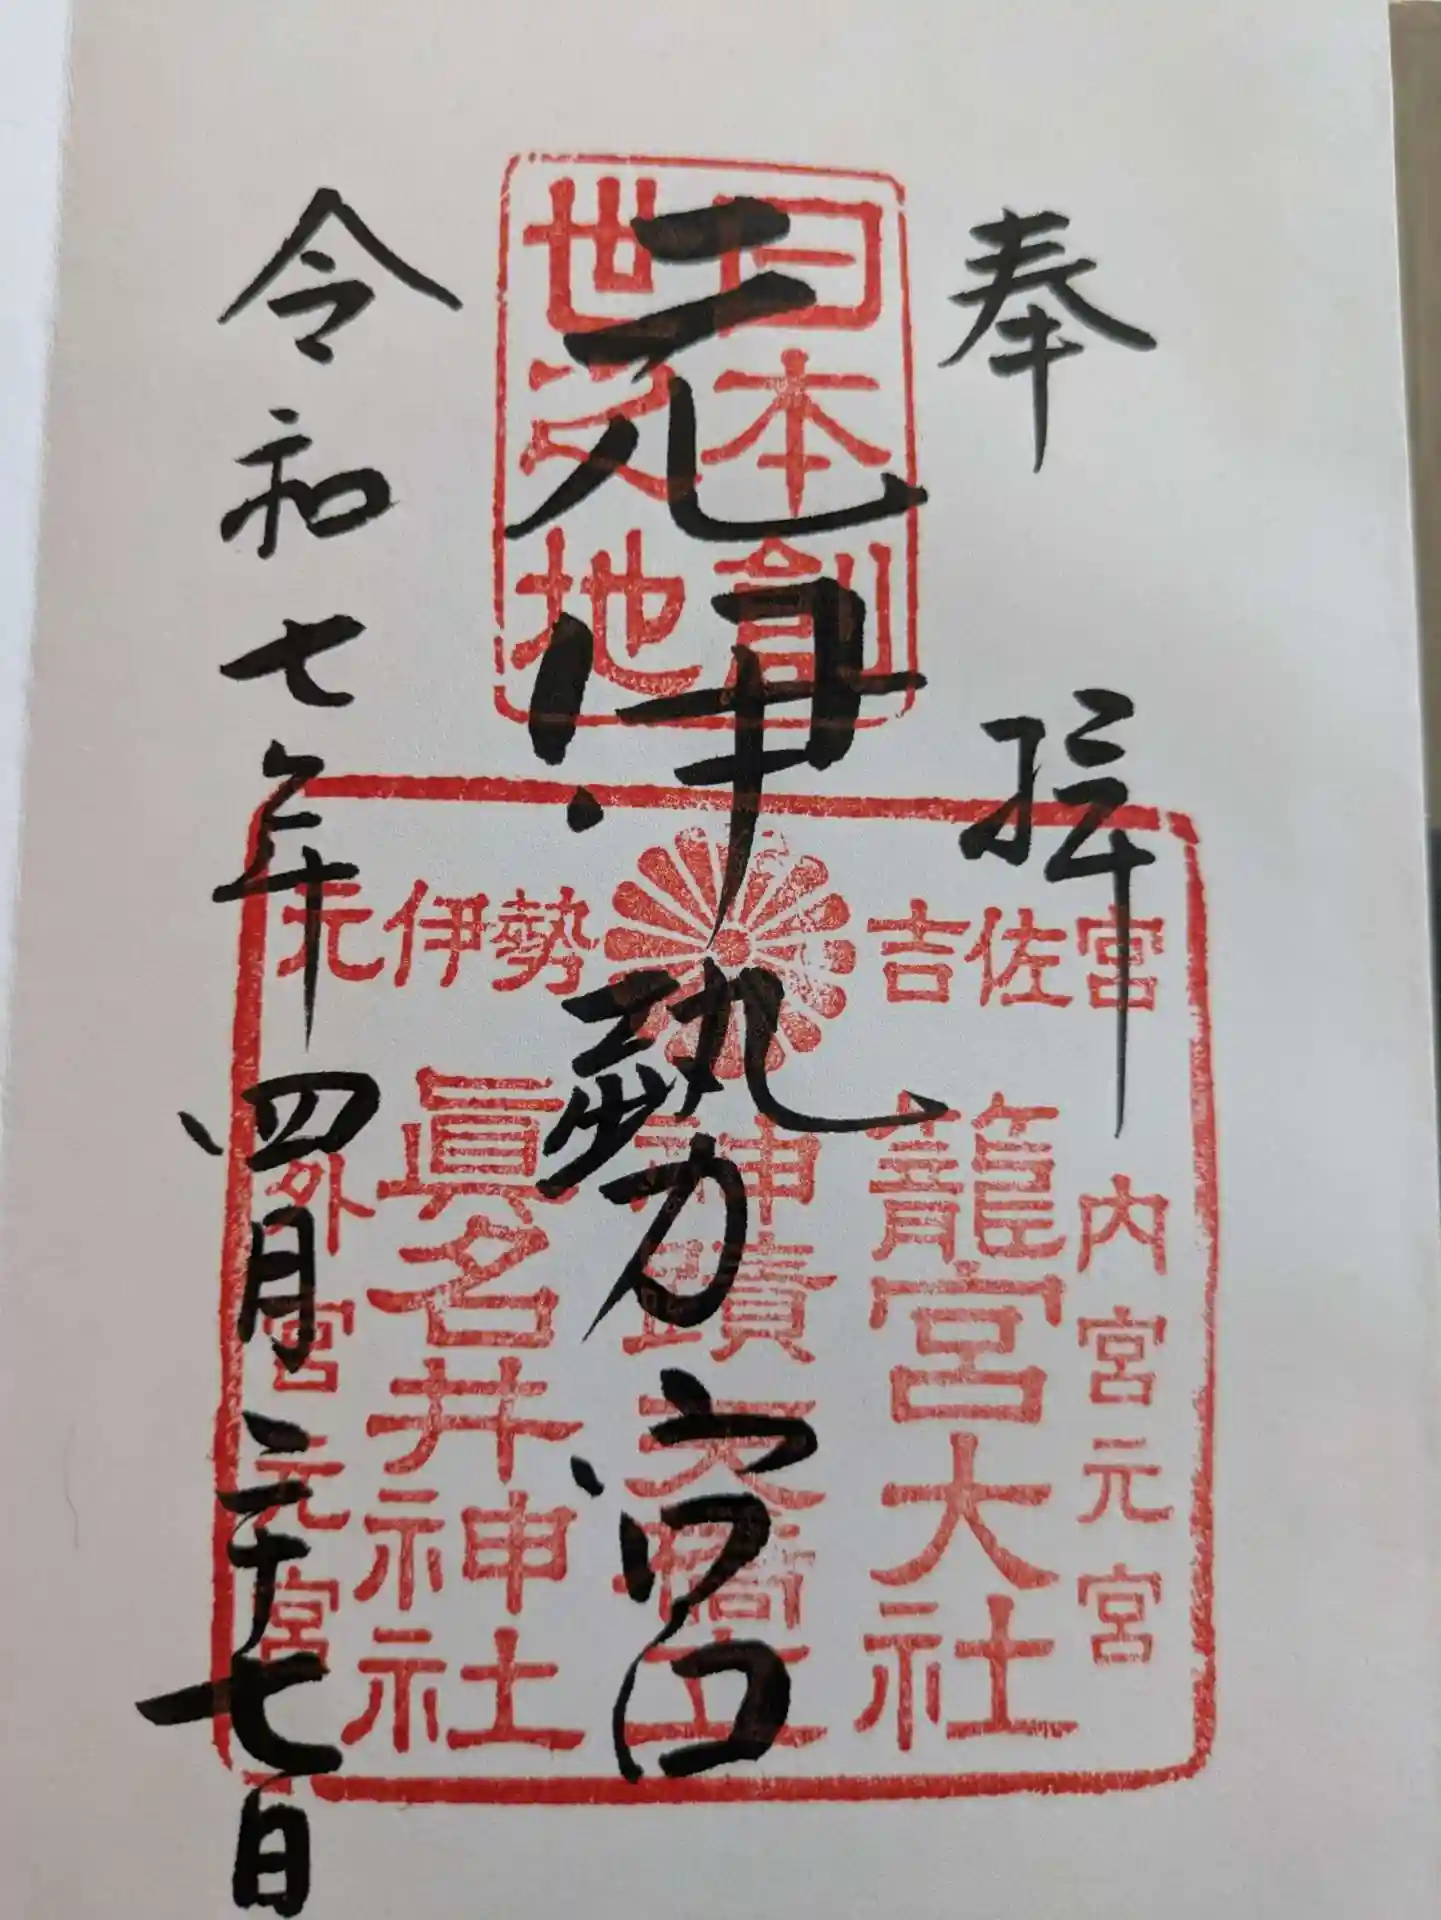 奉拝
日本創
世之地
元伊勢宮
令和七年四月二十七日
元伊勢 吉佐宮
内宮元宮
籠宮大社
神蹟天橋立
眞名井神社
外宮元宮